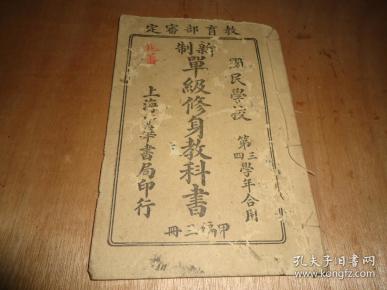 教育部審定
國民學校
第三四學年合用
新制
單級修身教科書
甲編三冊
上海中華書局印行
孔夫子旧书网